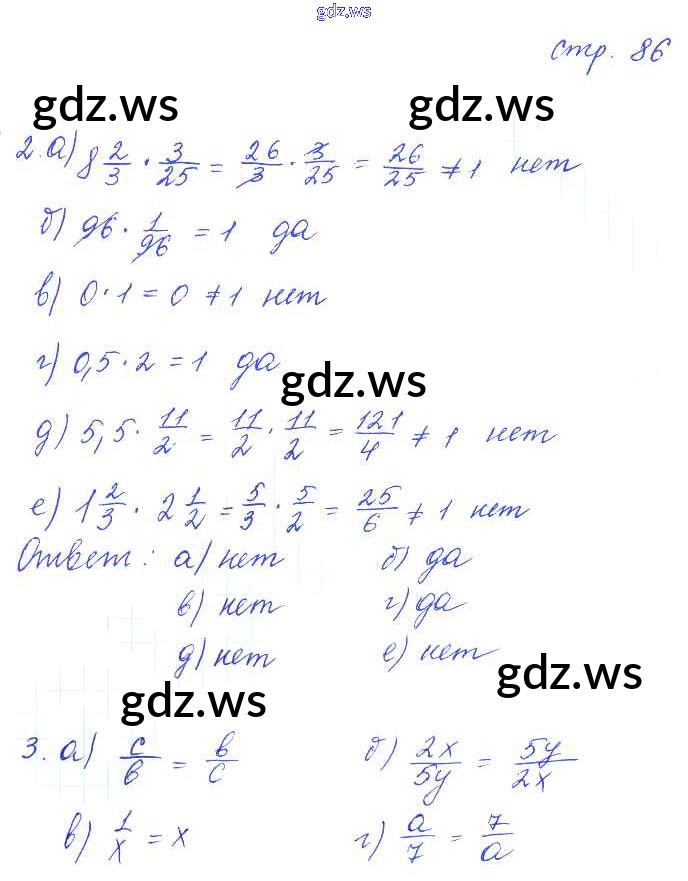 gdz.ws
стр. 86
gdz.ws gdz.ws
2. а) 8 2/3 · 3/25 = 26/3 · 3/25 = 26/25 ≠ 1 нет
б) 96 · 1/96 = 1 да
в) 0 · 1 = 0 ≠ 1 нет
г) 0,5 · 2 = 1 да
gdz.ws
д) 5,5 · 11/2 = 11/2 · 11/2 = 121/4 ≠ 1 нет
е) 1 2/3 · 2 1/2 = 5/3 · 5/2 = 25/6 ≠ 1 нет
Ответ: а) нет б) да
в) нет г) да
д) нет е) нет
gdz.ws gdz.ws
3. а) c/b = b/c б) 2x/5y = 5y/2x
в) 1/x = x г) a/7 = 7/a